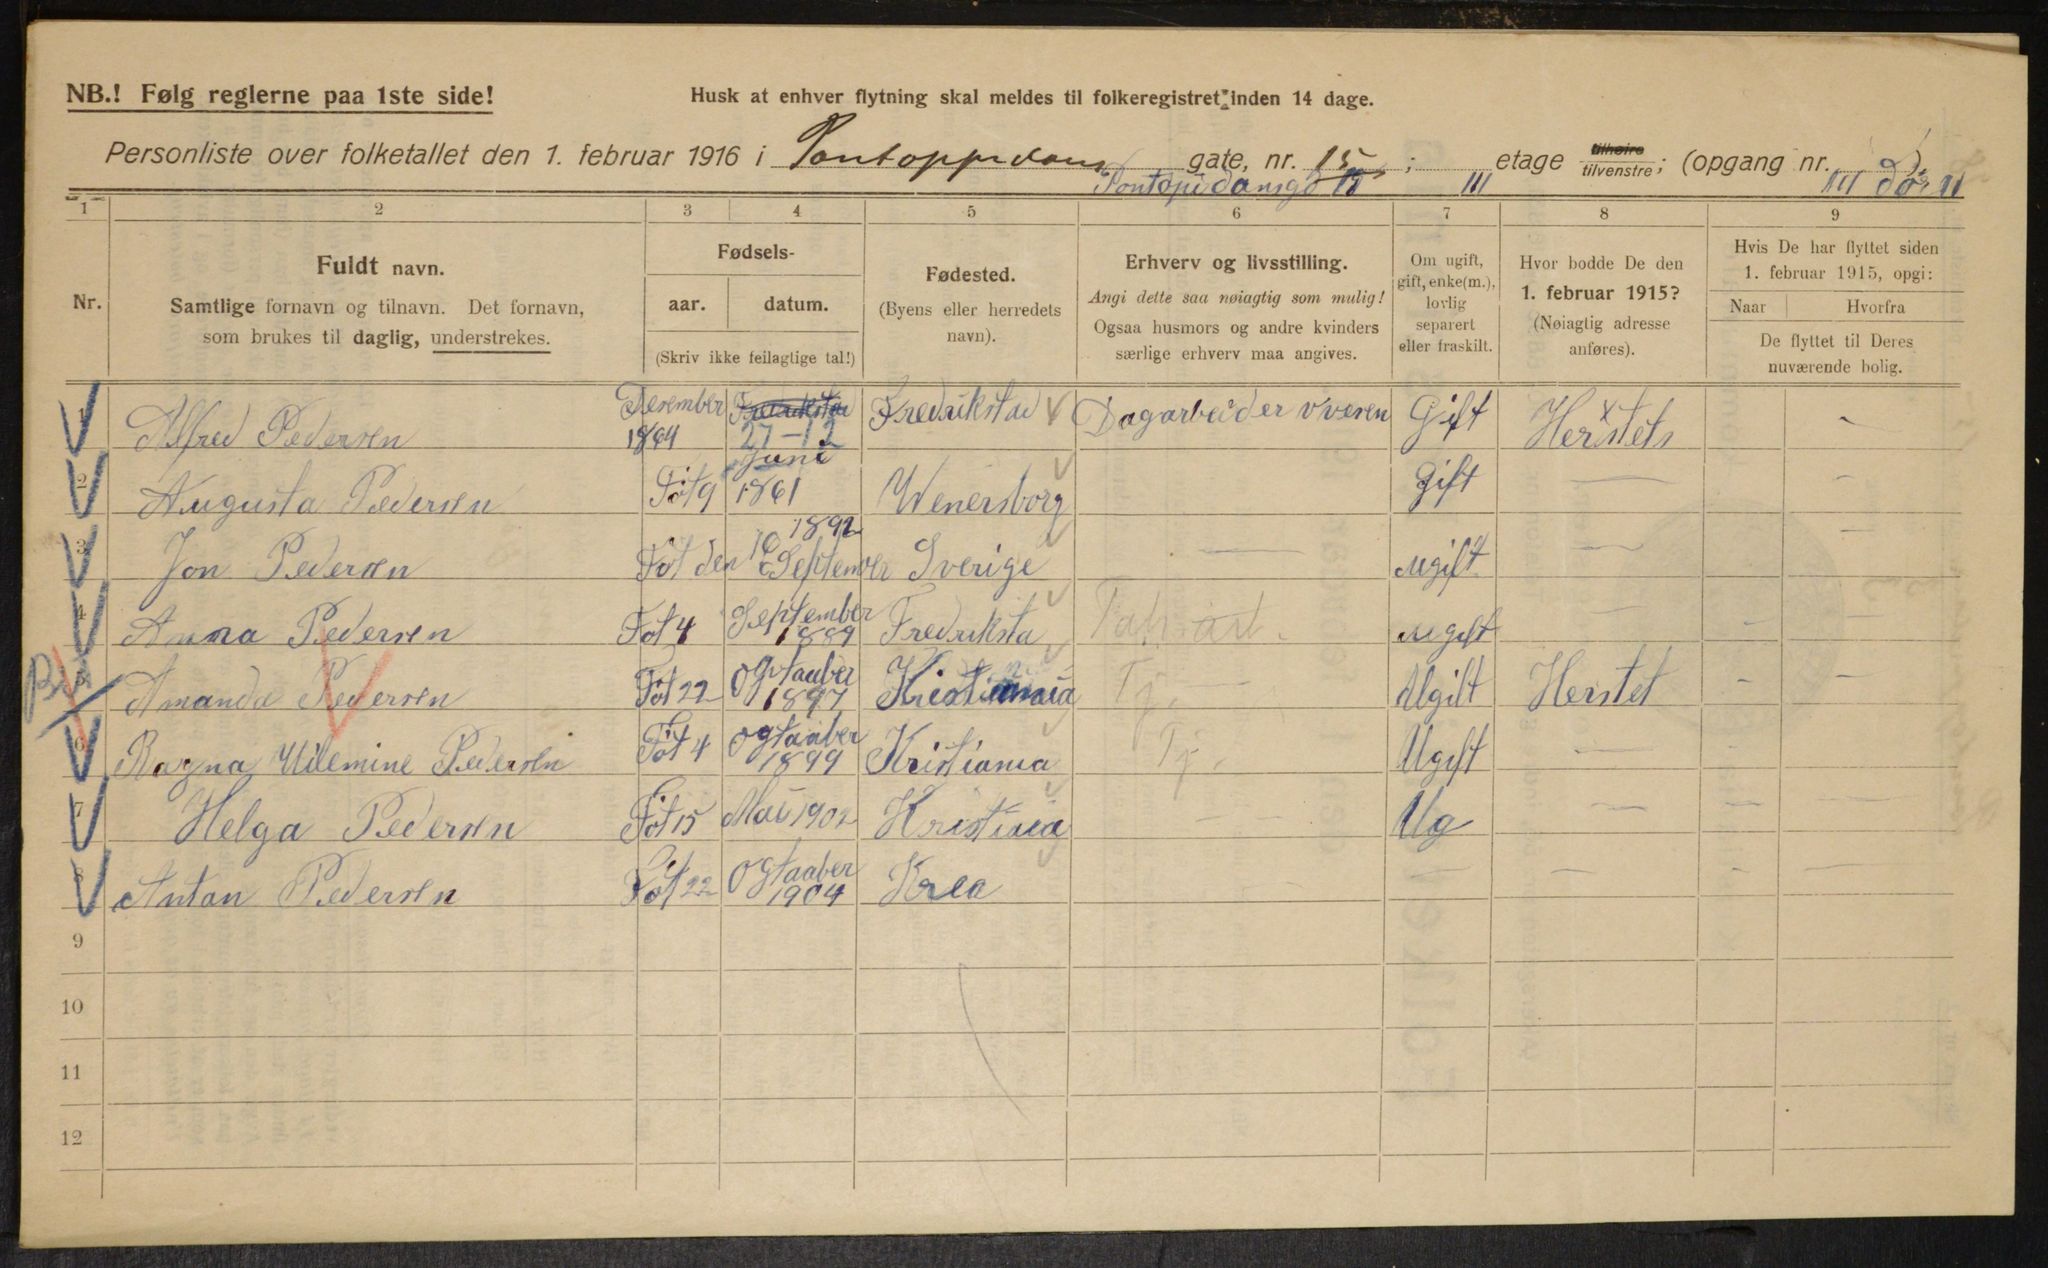 NB.! Følg reglerne paa 1ste side!
Husk at enhver flytning skal meldes til folkeregistret inden 14 dage.
Personliste over folketallet den 1. februar 1916 i Pontoppidans gate, nr. 15 ; etage tilhøire tilvenstre; (opgang nr. ).
Pontopidansg 15 III III dør II
1 2 3 4 5 6 7 8 9
Nr. Fuldt navn. Samtlige fornavn og tilnavn. Det fornavn, som brukes til daglig, understrekes.
Fødsels- aar. datum. (Skriv ikke feilagtige tal!)
Fødested. (Byens eller herredets navn).
Erhverv og livsstilling. Angi dette saa nøiagtig som mulig! Ogsaa husmors og andre kvinders særlige erhverv maa angives.
Om ugift, gift, enke(m.), lovlig separert eller fraskilt.
Hvor bodde De den 1. februar 1915? (Nøiagtig adresse anføres).
Hvis De har flyttet siden 1. februar 1915, opgi: Naar Hvorfra De flyttet til Deres nuværende bolig.
1 Alfred Pedersen Desember 1864 Fredrikstad 27-12 Fredrikstad Dagarbeider vvesen Gift Herstets —
2 Augusta Pedersen Föt 9 Juni 1861 Wenersborg Gift — —
3 Jon Pedersen Föt den 16 September 1892 Sverige — Ugift — —
4 Anna Pedersen Föt 4 September 1889 Fredriksta Ugift — — —
5 Amanda Pedersen Föt 22 Ogtaaber 1897 Kristiania Tj. — Ugift Herstet — —
6 Ragna Uilemine Pedersen Föt 4 Ogtaaber 1899 Kristiania Tj. Ugift — — —
7 Helga Pedersen Föt 15 Mai 1902 Kristiania — Ug — — —
8 Antan Pedersen Föt 22 Ogtaaber 1904 Krea — — — —
9
10
11
12